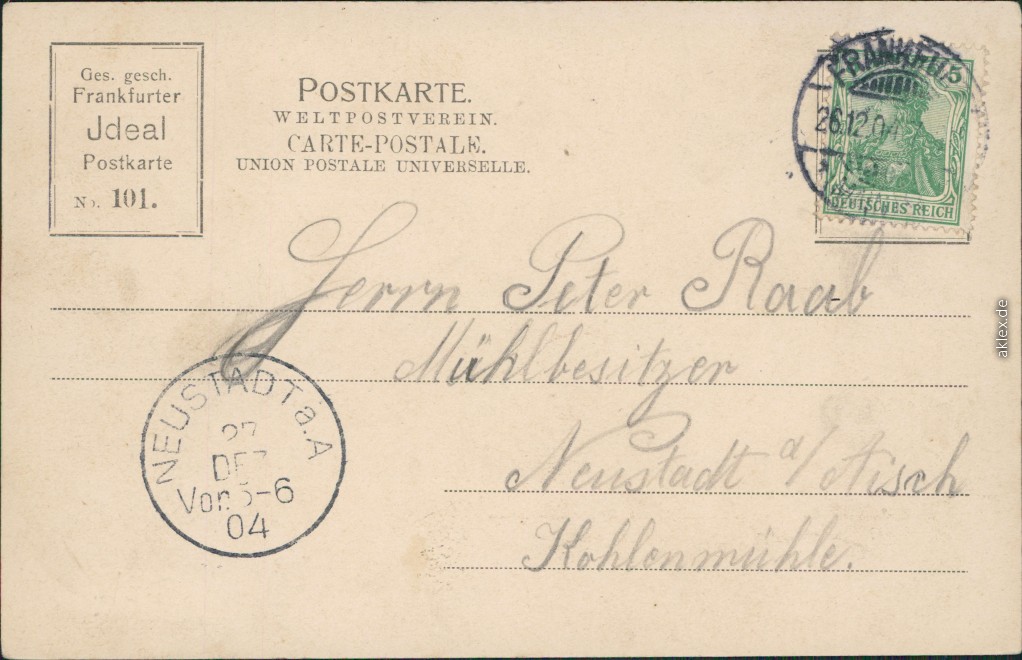 Ges. gesch.
Frankfurter
Jdeal
Postkarte
No. 101.
POSTKARTE.
WELTPOSTVEREIN.
CARTE-POSTALE.
UNION POSTALE UNIVERSELLE.
FRANKFU
26.12.04
5
DEUTSCHES REICH
Herrn Peter Raab
Mühlbesitzer
Neustadt a/Aisch
Kohlenmühle.
NEUSTADT a. A
27
DEZ
Vor. 5-6
04
aklex.de